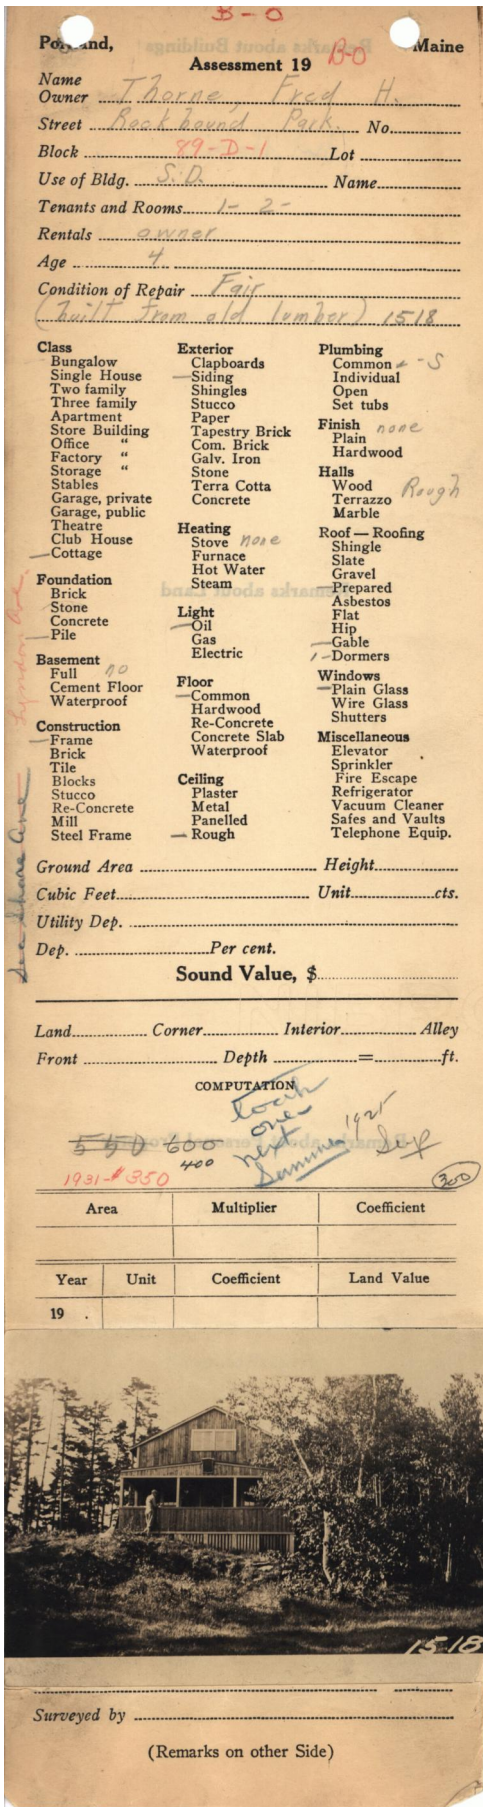 B-O
Portland, Maine
Assessment 19 B-O
Name
Owner Thorne, Fred H.
Street Rockbound Park. No.
Block 89-D-1 Lot
Use of Bldg. S.D. Name
Tenants and Rooms 1- 2-
Rentals owner
Age 4
Condition of Repair Fair
(built from old lumber) 1518
Class
Bungalow
Single House
Two family
Three family
Apartment
Store Building
Office "
Factory "
Storage "
Stables
Garage, private
Garage, public
Theatre
Club House
Cottage
Foundation
Brick
Stone
Concrete
Pile
Basement
Full no
Cement Floor
Waterproof
Construction
Frame
Brick
Tile
Blocks
Stucco
Re-Concrete
Mill
Steel Frame
Exterior
Clapboards
Siding
Shingles
Stucco
Paper
Tapestry Brick
Com. Brick
Galv. Iron
Stone
Terra Cotta
Concrete
Heating
Stove none
Furnace
Hot Water
Steam
Light
Oil
Gas
Electric
Floor
Common
Hardwood
Re-Concrete
Concrete Slab
Waterproof
Ceiling
Plaster
Metal
Panelled
Rough
Plumbing
Common -S
Individual
Open
Set tubs
Finish none
Plain
Hardwood
Halls
Wood
Terrazzo Rough
Marble
Roof — Roofing
Shingle
Slate
Gravel
Prepared
Asbestos
Flat
Hip
Gable
1- Dormers
Windows
Plain Glass
Wire Glass
Shutters
Miscellaneous
Elevator
Sprinkler
Fire Escape
Refrigerator
Vacuum Cleaner
Safes and Vaults
Telephone Equip.
See Shore Ave Lyndon Ave.
Ground Area Height
Cubic Feet Unit cts.
Utility Dep.
Dep. Per cent.
Sound Value, $
Land Corner Interior Alley
Front Depth = ft.
COMPUTATION
look
over
next
Summer 1925
550 600
400
1931-$350
300
Area Multiplier Coefficient
Year Unit Coefficient Land Value
19 .
1518
Surveyed by
(Remarks on other Side)